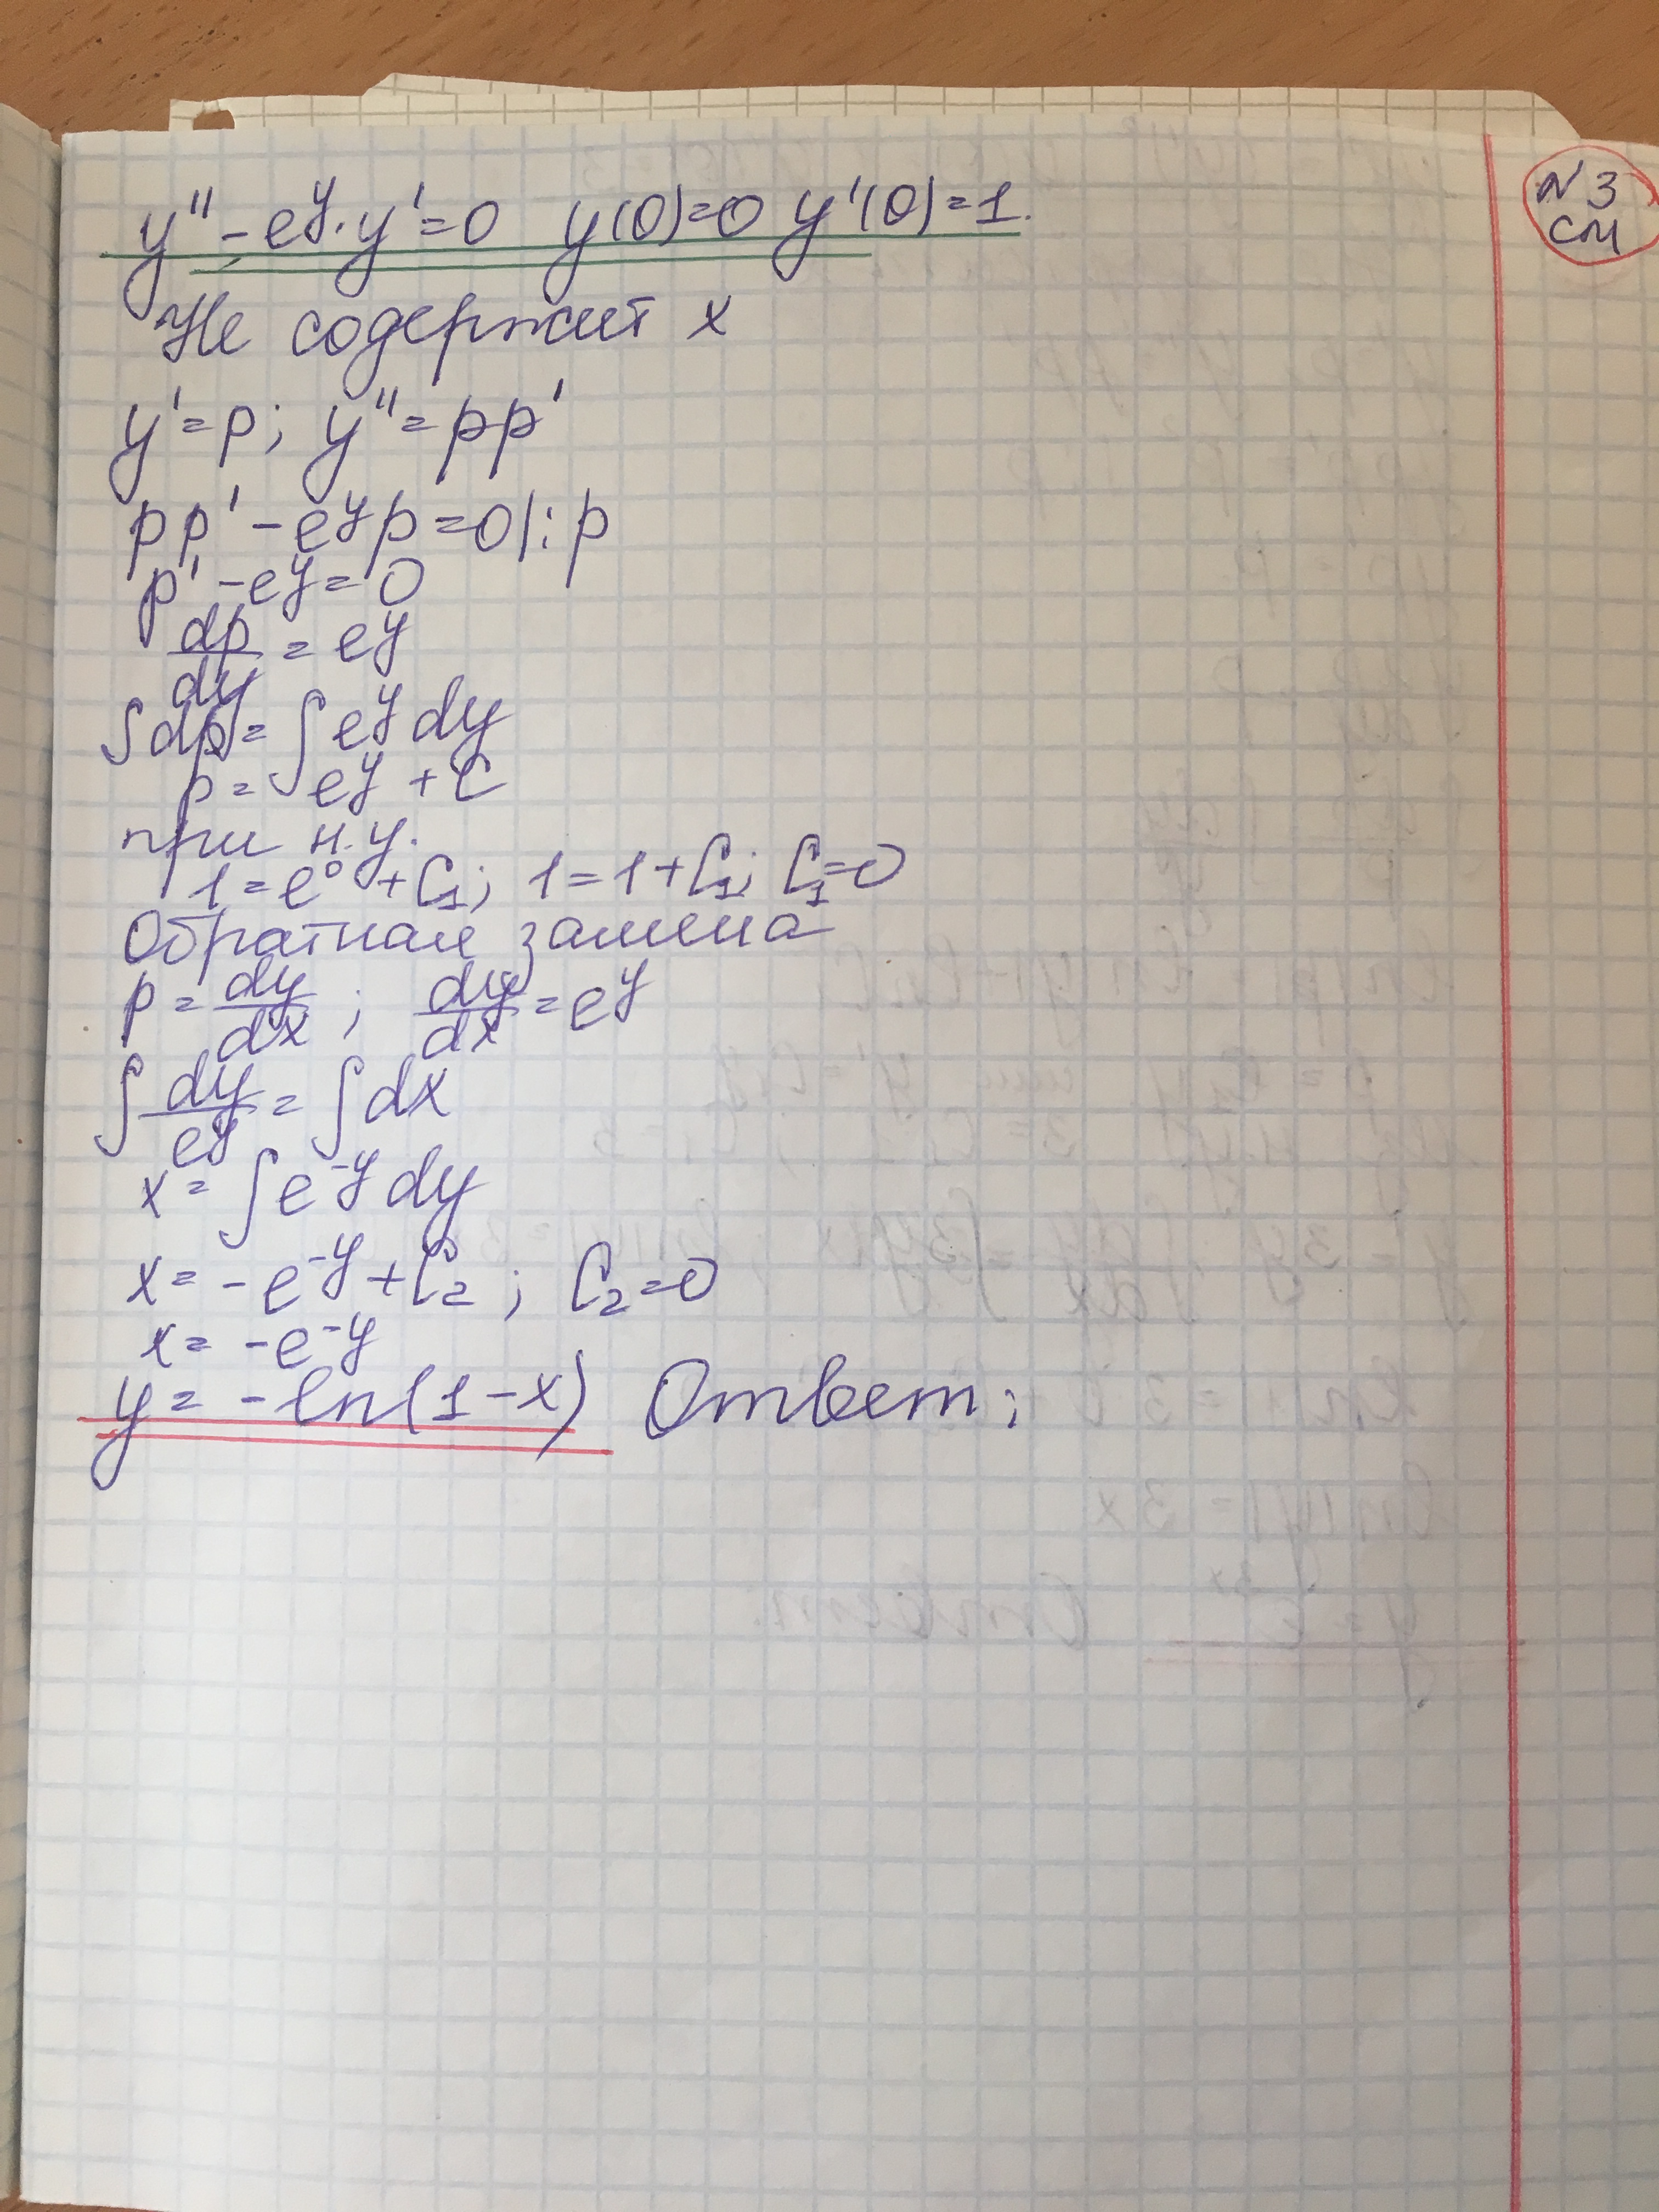 y'' - e^y · y' = 0 y(0)=0 y'(0)=1.
N3
см
Не содержит x
y' = p; y'' = pp'
pp' - e^y p = 0 |: p
p' - e^y = 0
dp/dy = e^y
∫dp = ∫e^y dy
p = e^y + C
при н.у.
1 = e^0 + C₁; 1 = 1 + C₁; C₁ = 0
Обратная замена
p = dy/dx ; dy/dx = e^y
∫ dy/e^y = ∫dx
x = ∫e^-y dy
x = -e^-y + C₂ ; C₂ = 0
x = -e^-y
y = -ln(1-x) Ответ;